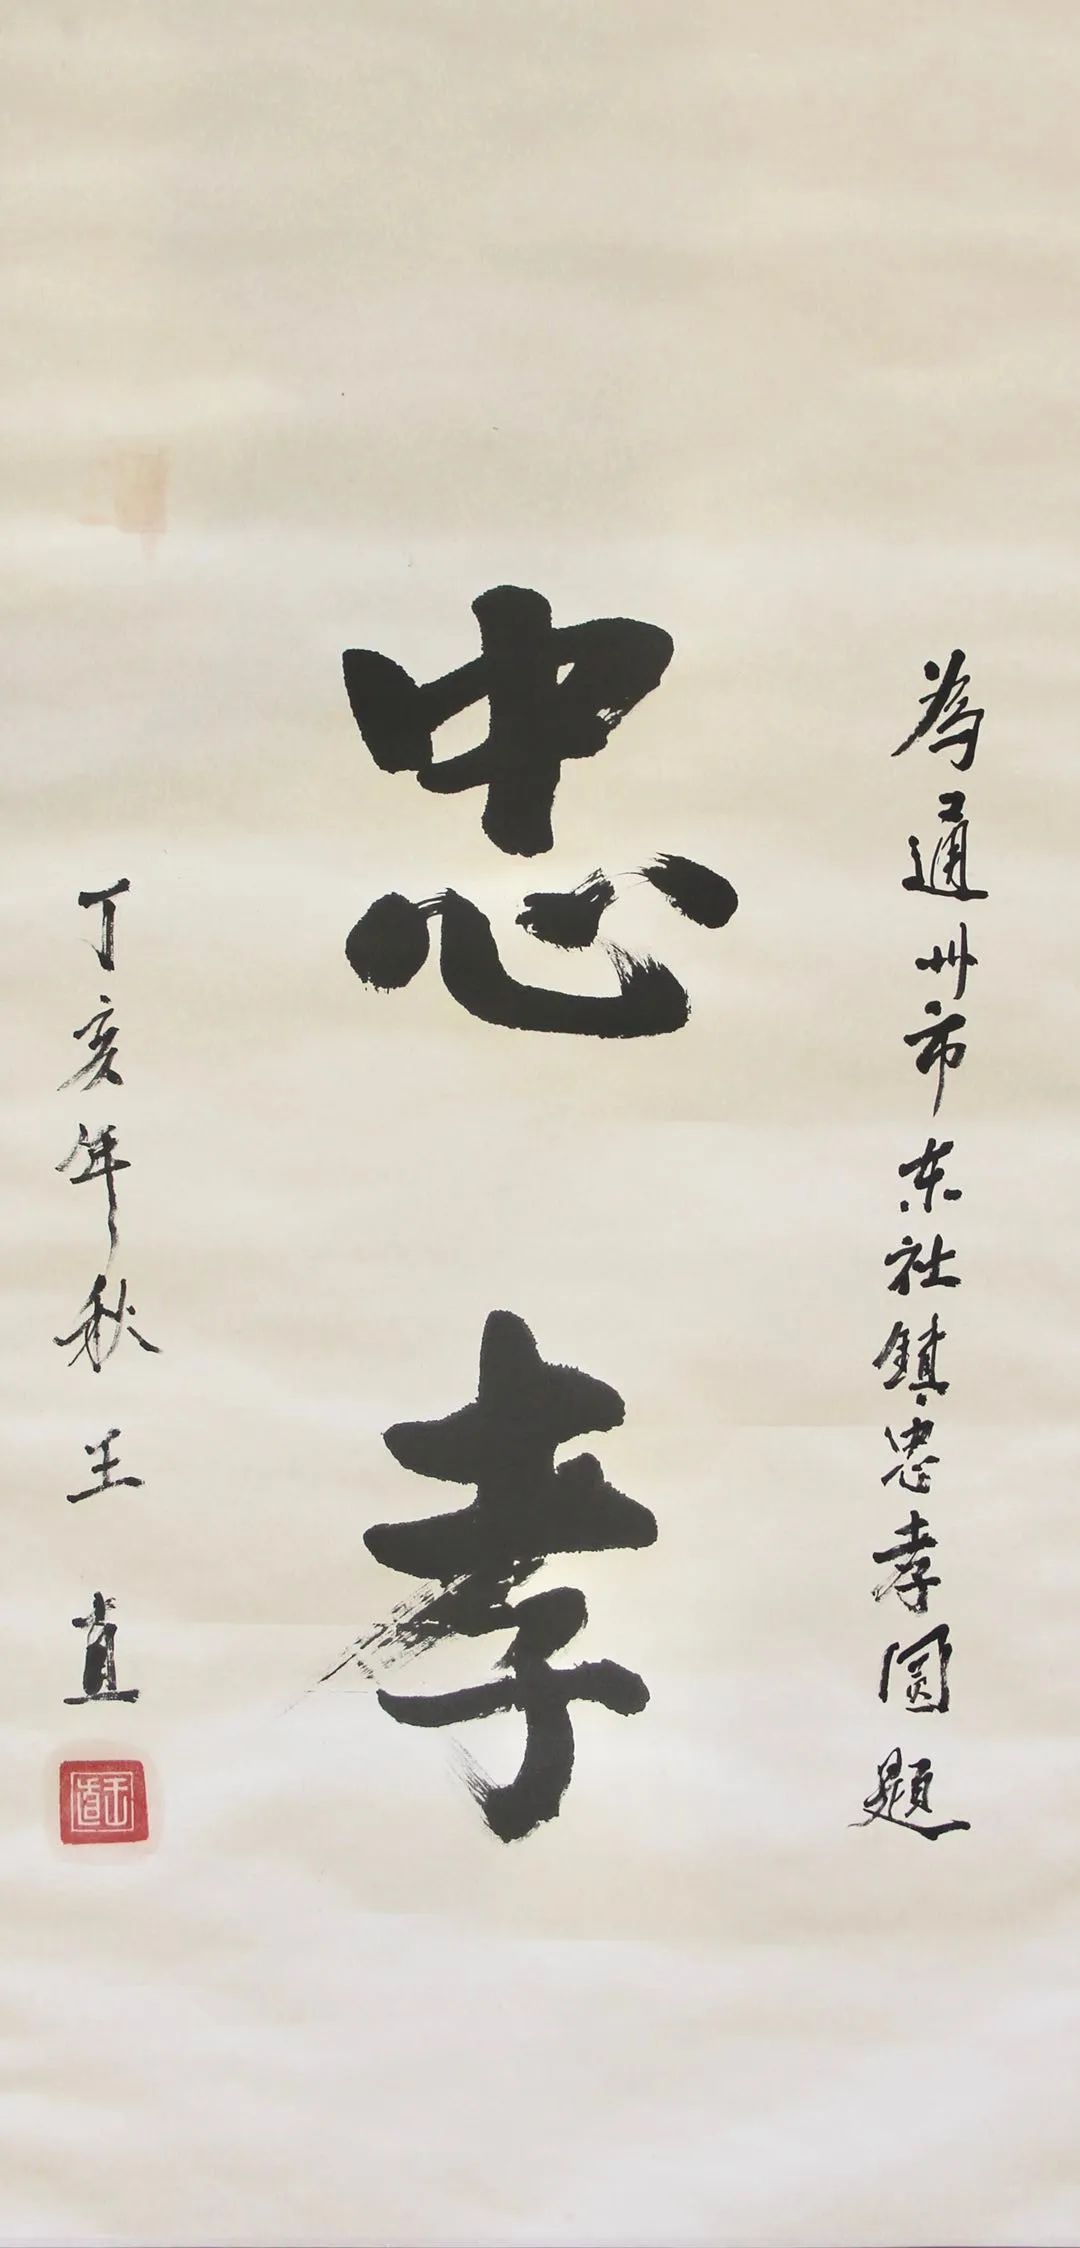 為通州市东社镇忠孝园题
忠孝
丁亥年秋王直
王直